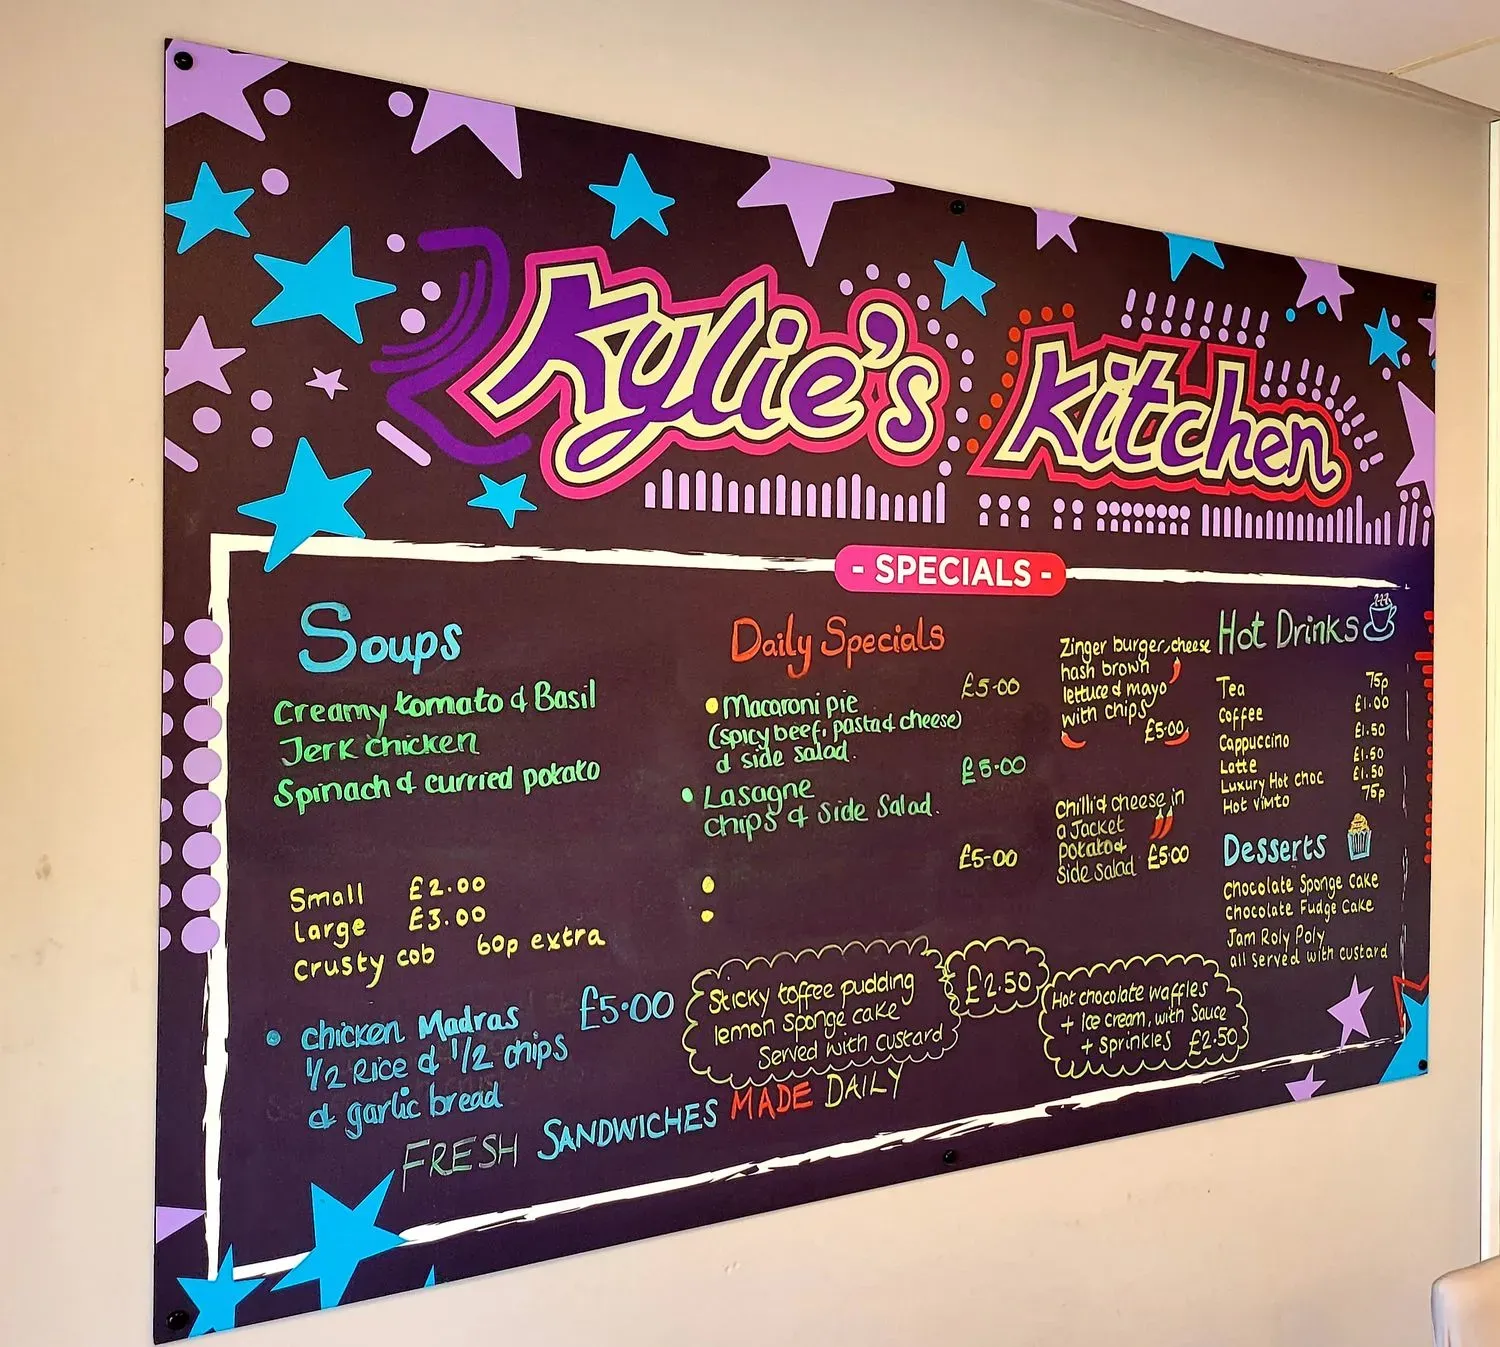 Kylie's Kitchen
- SPECIALS -
Soups
Creamy tomato & Basil
Jerk chicken
Spinach & curried potato
Small £2.00
Large £3.00
Crusty cob 60p extra
• Chicken Madras £5.00
1/2 Rice & 1/2 chips
& garlic bread
Daily Specials
• Macaroni pie £5.00
(spicy beef, pasta & cheese)
& side salad.
• Lasagne £5.00
chips & side salad.
£5.00
Zinger burger, cheese
hash brown
lettuce & mayo
with chips
£5.00
Chilli & cheese in
a Jacket
potato &
side salad £5.00
Hot Drinks
Tea 75p
Coffee £1.00
Cappuccino £1.50
Latte £1.50
Luxury Hot choc £1.50
Hot vimto 75p
Desserts
Chocolate Sponge Cake
Chocolate Fudge Cake
Jam Roly Poly
all served with custard
Sticky toffee pudding
lemon sponge cake
Served with custard
£2.50
Hot chocolate waffles
+ Ice cream, with Sauce
+ Sprinkles £2.50
FRESH SANDWICHES MADE DAILY